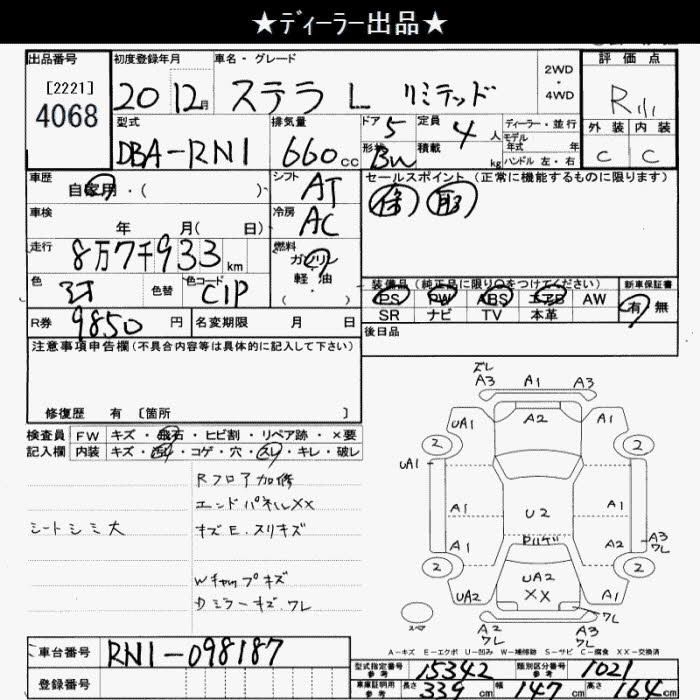 ★ディーラー出品★
出品番号
[2221]
4068
初度登録年月
20 12月
車名・グレード
ステラ L リミテッド
2WD
・
4WD
評価点
R
外装 内装
C C
型式
DBA-RN1
排気量
660 cc
ドア 5
形状
定員 4 人
積載 kg
ディーラー・並行
モデル
年式 年
ハンドル 左・右
車歴
自家用・( )
シフト AT
セールスポイント(正常に機能するものに限ります)
車検
年 月( 日)
冷房 AC
走行
8万7千933 km
燃料
ガソリン
軽・油
( ・ )
色
色替
色コード C1P
装備品(純正品に限り〇をつけてください)
新車保証書
PS PW ABS エアB AW
有 無
SR ナビ TV 本革
R券 9850 円
名変期限 月 日
後日品
注意事項申告欄(不具合内容等は具体的に記入して下さい)
修復歴 有 [箇所 ]
検査員 FW キズ・飛石・ヒビ割・リペア跡・×要
記入欄 内装 キズ・汚れ・コゲ・穴・スレ・キレ・破レ
Rフロア加修
エンドパネルXX
シートシミ大
キズE.スリキズ
Wキャップキズ
ミラーキズ.ワレ
ズレ
A3 A1 A3
A2
UA1 A1
2 2
UA1
A1 U2 A1
A1 A2 A3
ワレ
2 2
UA2 UA2 A1
XX
ワレ
A2 A3
ワレ
スペア
A-キズ E-エクボ U-凹み W-補修跡 S-サビ C-腐食 XX-交換済
車台番号 RN1-098187
登録番号
型式指定番号
参考
15342
類別区分番号
参考
1021
車庫証明用
参考
長さ 339 cm 幅 147 cm 高さ 164 cm